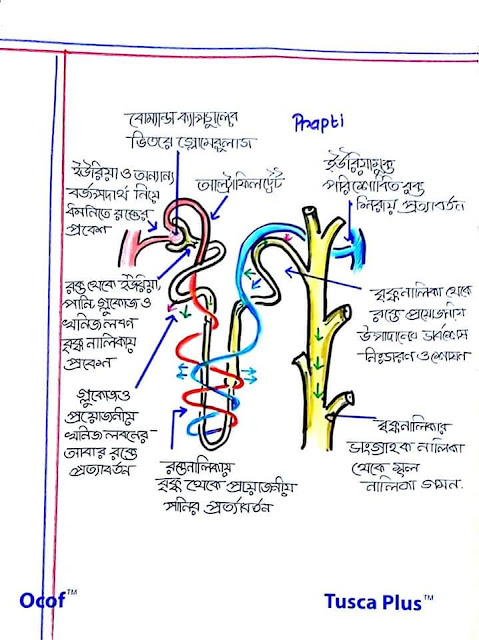 বোম্যান্স ক্যাপসুলের
ভিতরে গ্লোমেরুলাস
Prapti
ইউরিয়া ও অন্যান্য
বর্জ্যপদার্থ নিয়ে
ধমনিতে রক্তের
প্রবেশ
আল্ট্রাফিলট্রেট
ইউরিয়ামুক্ত
পরিশোধিত রক্ত
শিরায় প্রত্যাবর্তন
রক্ত থেকে ইউরিয়া,
পানি, গ্লুকোজ ও
খনিজ লবণ
বৃক্ক নালিকায়
প্রবেশ
বৃক্কনালিকা থেকে
রক্তে প্রয়োজনীয়
উপাদানের সর্বশেষ
নিঃসারণ ও শোষন
গ্লুকোজ ও
প্রয়োজনীয়
খনিজ লবনের-
আবার রক্তে
প্রত্যাবর্তন
রক্তনালিকায়
বৃক্ক থেকে প্রয়োজনীয়
পানির প্রর্ত্যাবর্তন
বৃক্কনালিকার
সংগ্রাহক নালিকা
থেকে মূল
নালিকা গমন.
Ocof™
Tusca Plus™